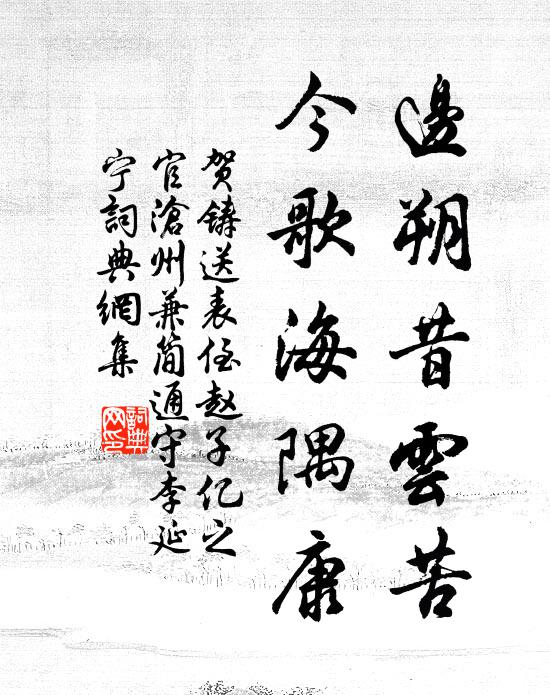 邊朔昔雲苦
今歌海隅康
贺鑄送表侄赵子亿之
官滄州兼简通守李延
宁詞典網集
詞典
网印